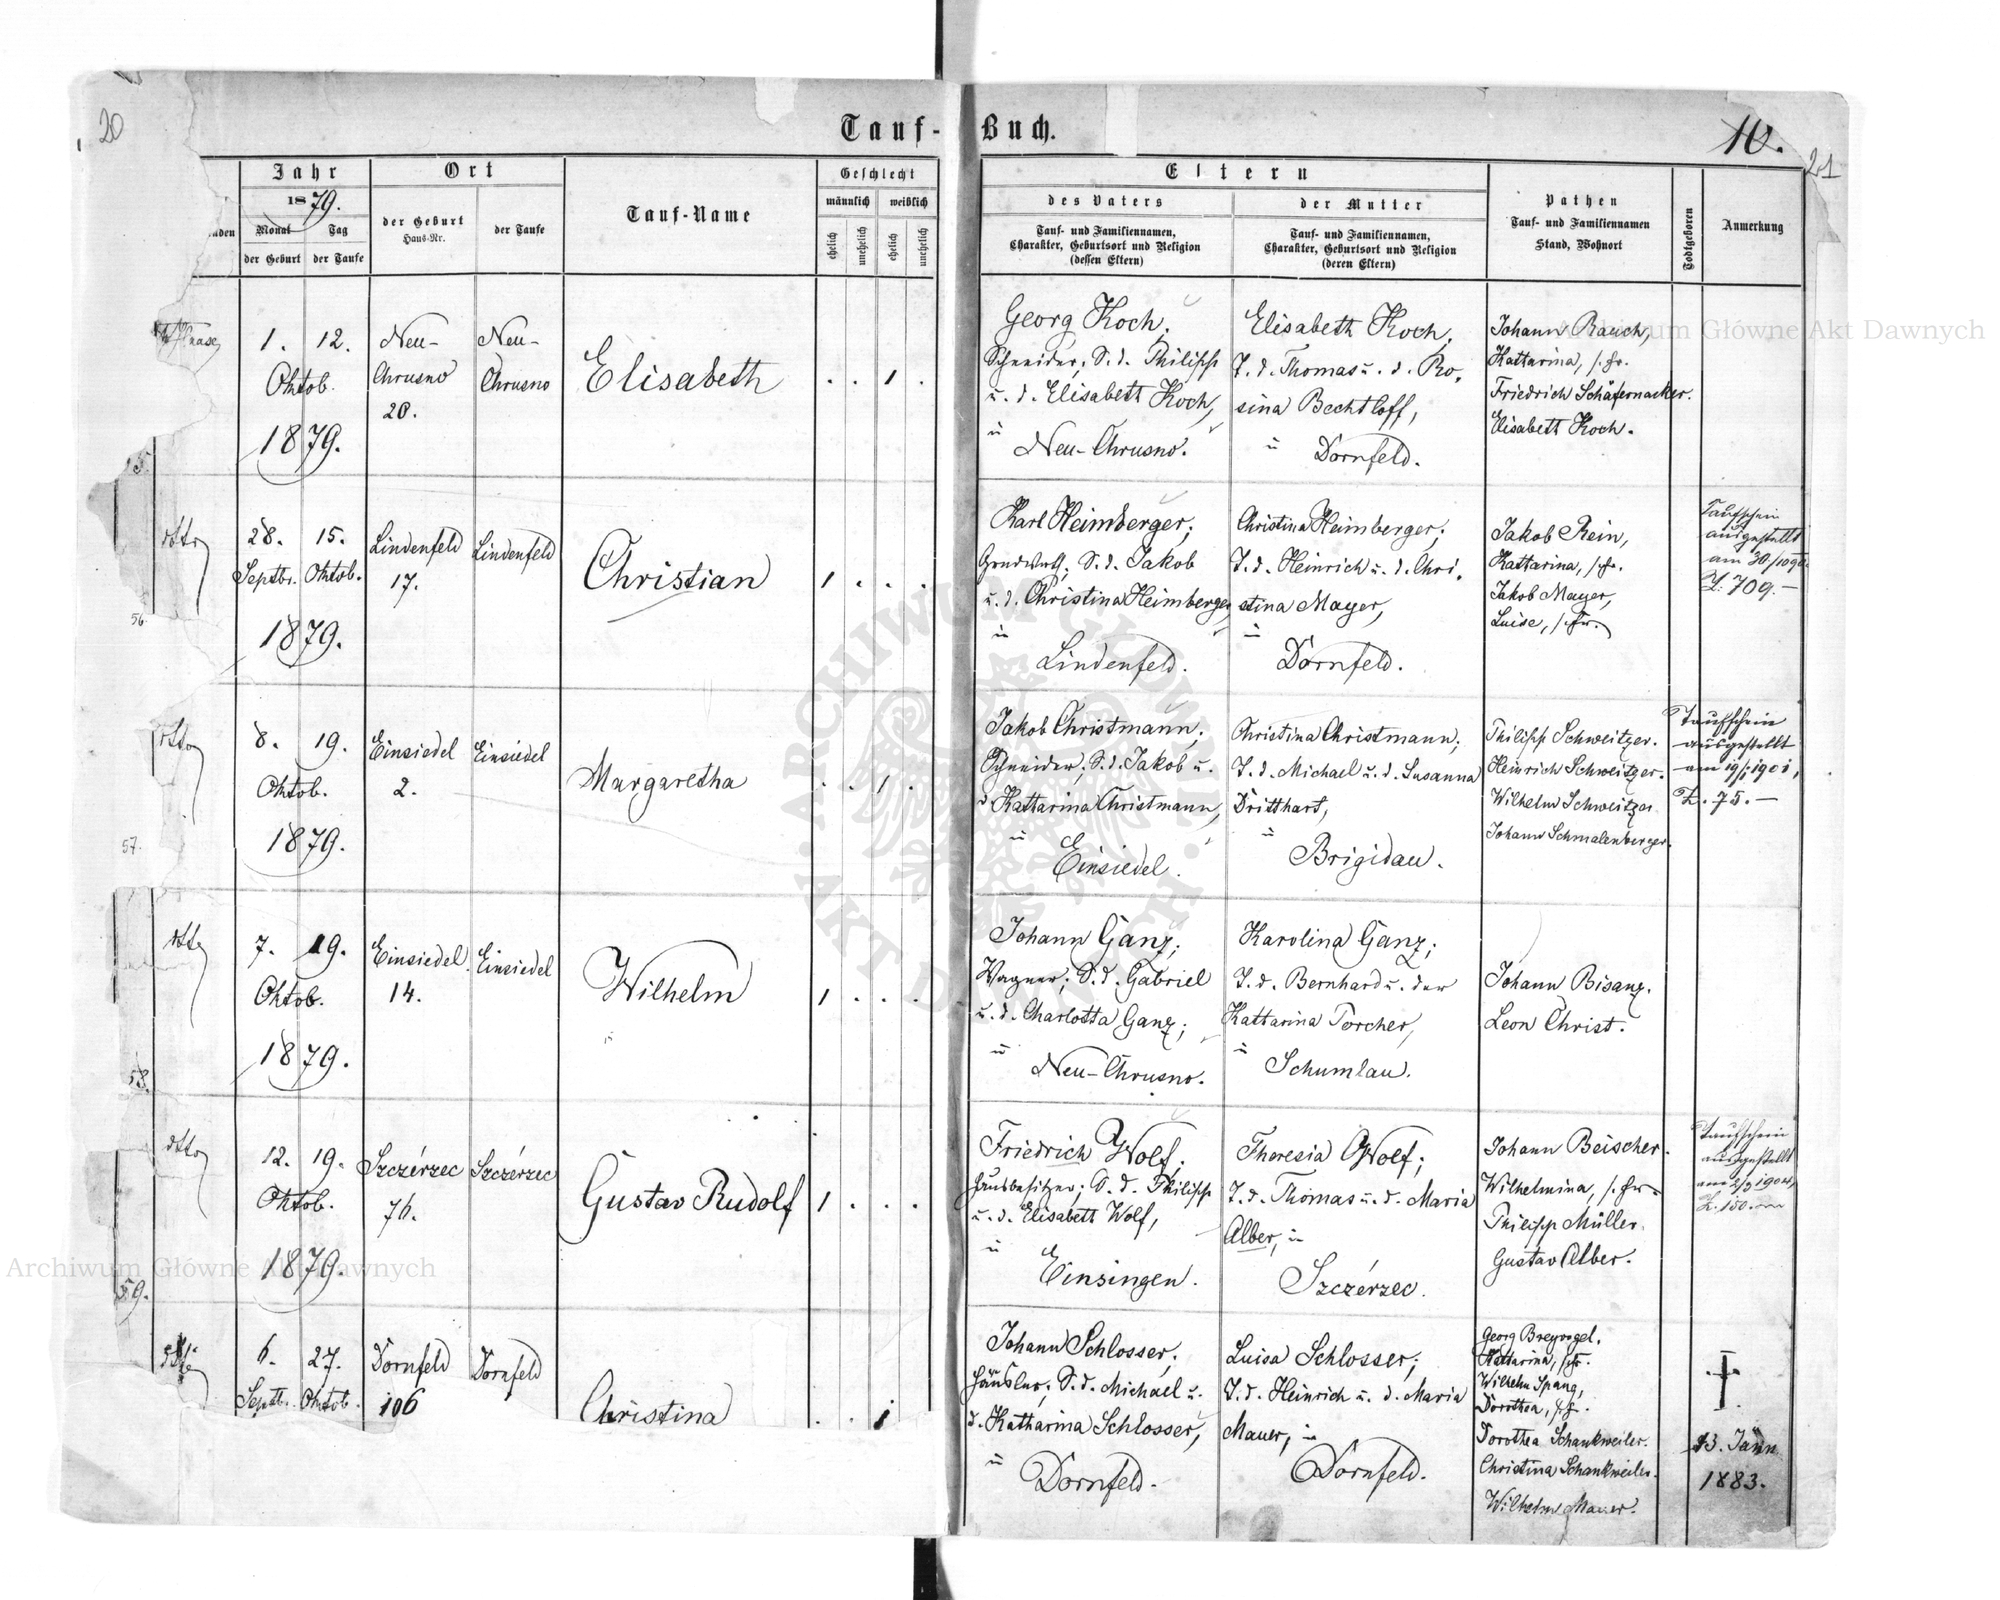 20
Tauf-Buch.
10.
21
Jahr
1879.
Monat
Tag
der Geburt
der Taufe
Ort
der Geburt
Haus-Nr.
der Taufe
Tauf-Name
Geschlecht
männlich
weiblich
ehelich
unehelich
ehelich
unehelich
Eltern
des Vaters
Tauf- und Familiennamen,
Charakter, Geburtsort und Religion
(dessen Eltern)
der Mutter
Tauf- und Familiennamen,
Charakter, Geburtsort und Religion
(deren Eltern)
Pathen
Tauf- und Familiennamen
Stand, Wohnort
Todtgeboren
Anmerkung
1. 12.
Oktob.
1879.
Neu-
Chrusno
20.
Neu-
Chrusno
Elisabeth
. . 1 .
Georg Koch,
Schneider; S. d. Philipp
u. d. Elisabeth Koch,
Neu-Chrusno.
Elisabeth Koch,
T. d. Thomas u. d. Ro-
sina Bechtloff,
Dornfeld.
Johann Rauch,
Kattarina, s. Fr.
Friedrich Schäfernacker.
Elisabeth Koch.
56.
dtto
28. 15.
Septbr. Oktob.
1879.
Lindenfeld
17.
Lindenfeld
Christian
1 . . .
Karl Heimberger;
Grundwth; S. d. Jakob
u. d. Christina Heimberger,
Lindenfeld.
Christina Heimberger;
T. d. Heinrich u. d. Chri-
stina Mayer,
Dornfeld.
Jakob Rein,
Kattarina, s. Fr.
Jakob Mayer,
Luise, s. Fr.
Taufschein
ausgestellt
Z. 709.—
57.
dtto
8. 19.
Oktob.
1879.
Einsiedel
2.
Einsiedel
Margaretha
. . 1 .
Jakob Christmann;
Schneider; S. d. Jakob u.
d. Kattarina Christmann,
Einsiedel.
Christina Christmann;
T. d. Michael u. d. Susanna
Dritthart,
Brigidau.
Philipp Schweitzer.
Heinrich Schweitzer.
Wilhelm Schweitzer
Johann Schmalenberger.
Taufschein
ausgestellt
am 19/1 1901,
Z. 75.—
58.
dtto
7. 19.
Oktob.
1879.
Einsiedel
14.
Einsiedel
Wilhelm
1 . . .
Johann Ganz;
Wagner; S. d. Gabriel
u. d. Charlotta Ganz;
Neu-Chrusno.
Karolina Ganz;
T. d. Bernhard u. der
Kattarina Porcher,
Schumlau.
Johann Bisanz.
Leon Christ.
59.
dtto
12. 19.
Oktob.
1879.
Szczérzec
76.
Szczérzec
Gustav Rudolf
1 . . .
Friedrich Wolf;
Hausbesitzer; S. d. Philipp
u. d. Elisabeth Wolf,
Einsingen.
Theresia Wolf;
T. d. Thomas u. d. Maria
Alber,
Szczérzec.
Johann Beischer.
Wilhelmina, s. Fr.
Philipp Müller.
Gustav Alber.
Taufschein
ausgestellt
am 2/3 1904,
Z. 150.
6. 27.
Septb. Oktob.
Dornfeld
106
Dornfeld
Christina
. . 1
Johann Schlosser;
Häusler; S. d. Michael u.
d. Katharina Schlosser,
Dornfeld.
Luisa Schlosser;
T. d. Heinrich u. d. Maria
Mauer,
Dornfeld.
Georg Breyvogel.
Kattarina, s. Fr.
Wilhelm Spang,
Dorothea, s. Fr.
Dorothea Schankweiler.
Christina Schankweiler.
Wilhelm Mauer.
13. Jänn
1883.
Archiwum Główne Akt Dawnych
Archiwum Główne Akt Dawnych